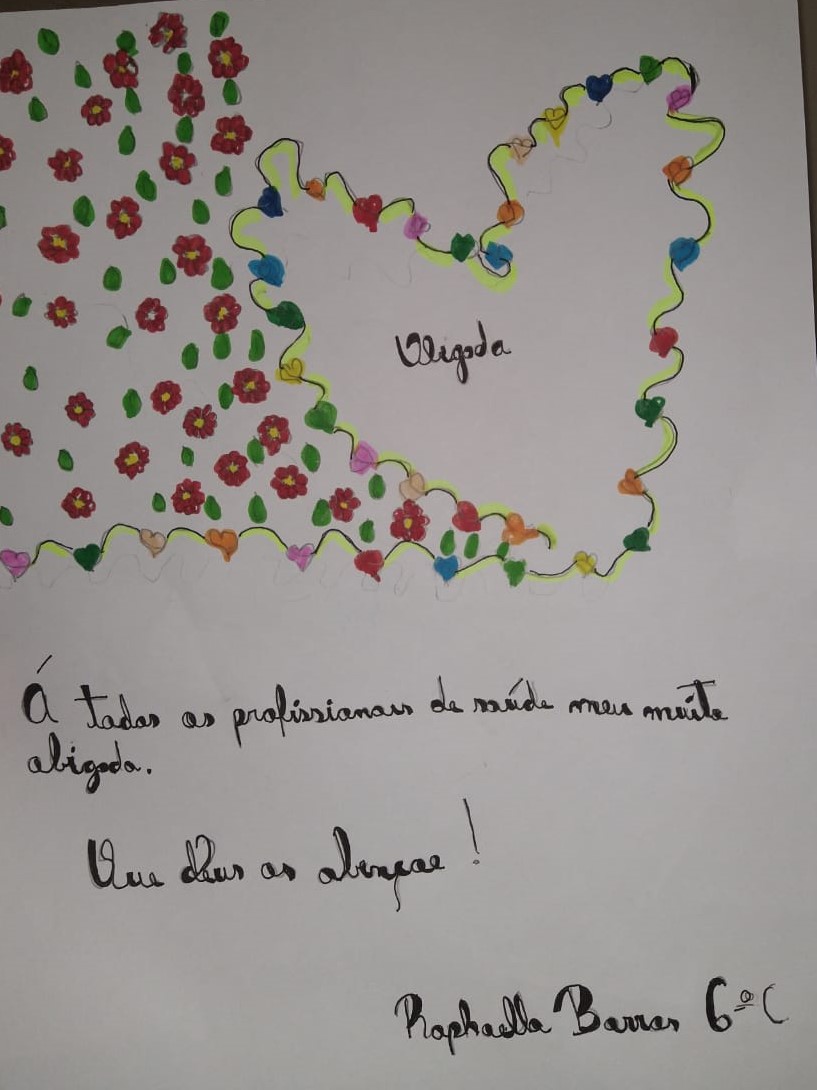 Obigada
Á todos os profissionais de saúde meu muito
obigada.
Que Deus os abençoe!
Raphaella Barros 6º C